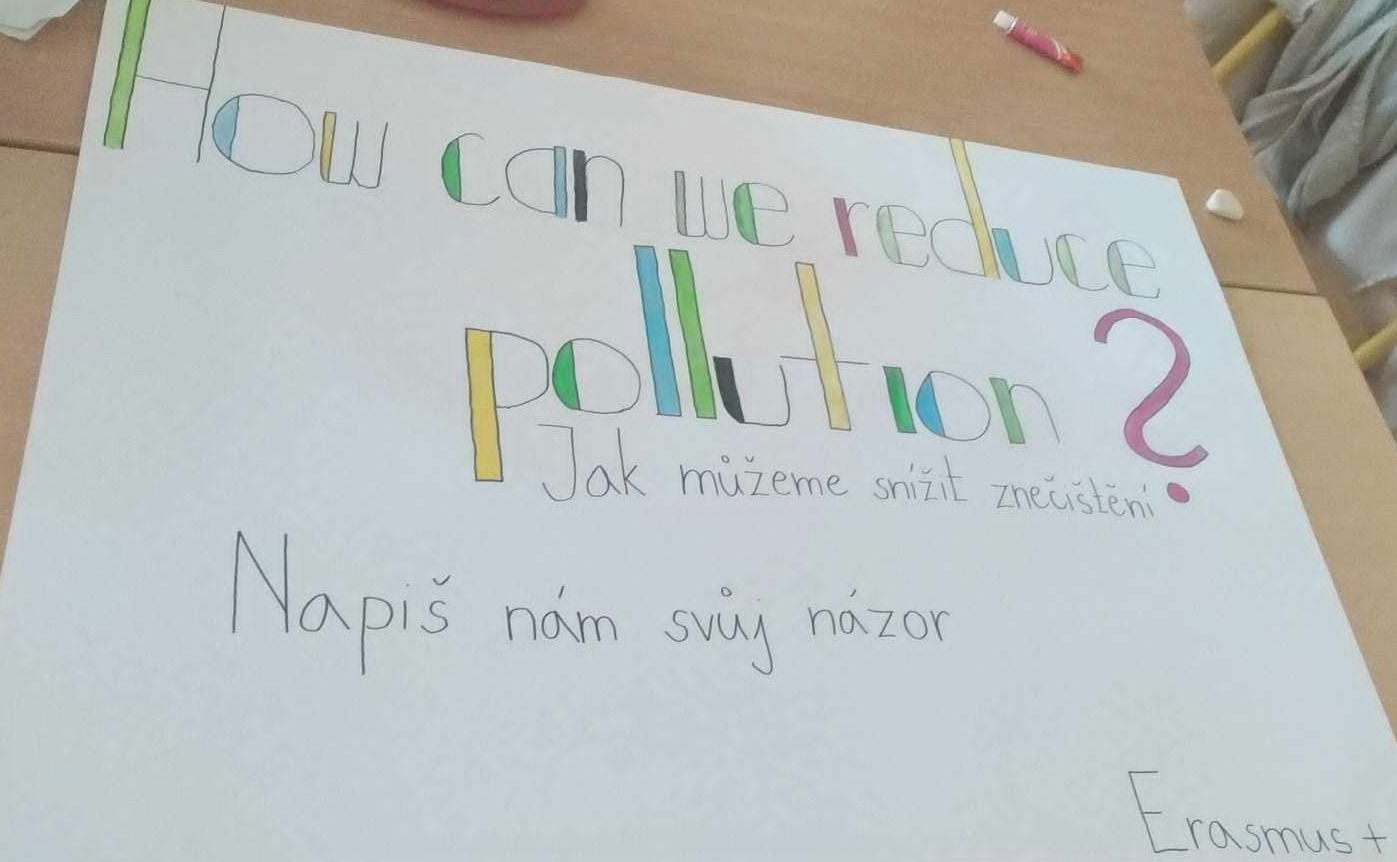 How can we reduce
pollution?
Jak můžeme snížit znečištění
Napiš nám svůj názor
Erasmus+